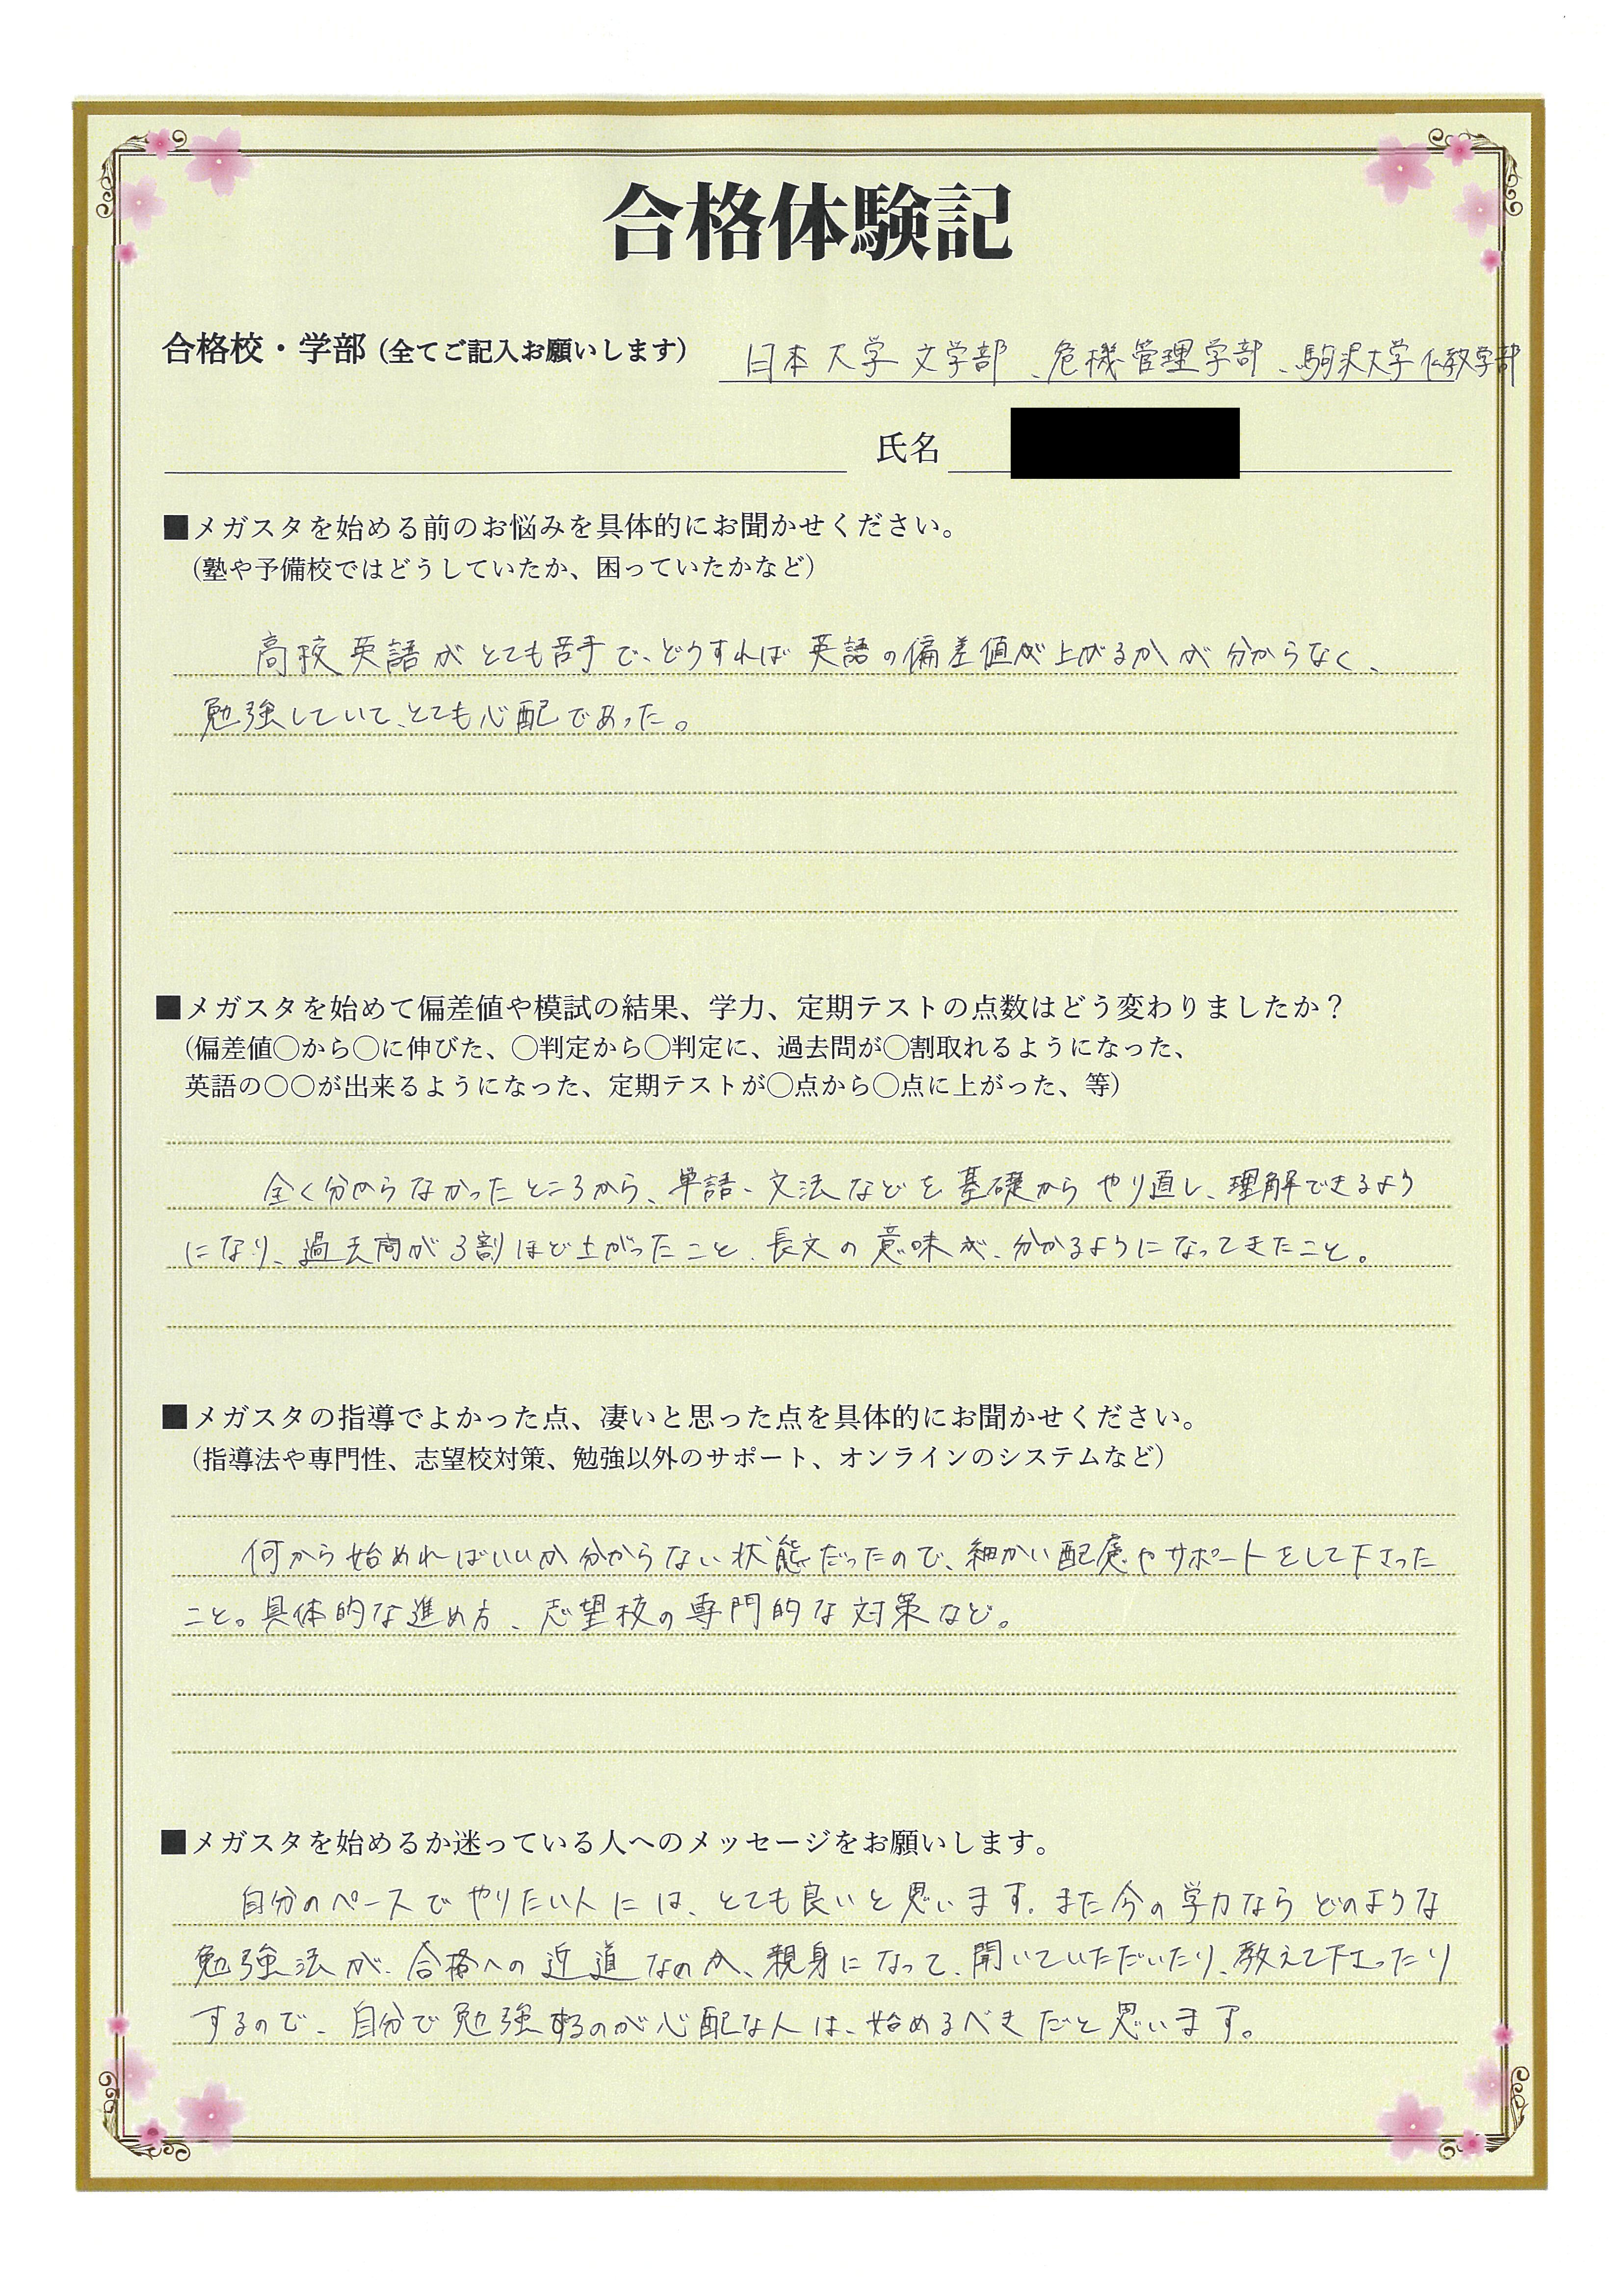 合格体験記
合格校・学部（全てご記入お願いします） 日本大学文学部、危機管理学部、駒沢大学仏教学部
氏名
■メガスタを始める前のお悩みを具体的にお聞かせください。
（塾や予備校ではどうしていたか、困っていたかなど）
高校英語がとても苦手で、どうすれば英語の偏差値が上がるかが分からなく、
勉強していて、とても心配であった。
■メガスタを始めて偏差値や模試の結果、学力、定期テストの点数はどう変わりましたか？
（偏差値〇から〇に伸びた、〇判定から〇判定に、過去問が〇割取れるようになった、
英語の〇〇が出来るようになった、定期テストが〇点から〇点に上がった、等）
全く分からなかったところから、単語、文法などを基礎からやり直し、理解できるよう
になり、過去問が3割ほど上がったこと、長文の意味が、分かるようになってきたこと。
■メガスタの指導でよかった点、凄いと思った点を具体的にお聞かせください。
（指導法や専門性、志望校対策、勉強以外のサポート、オンラインのシステムなど）
何から始めればいいか分からない状態だったので、細かい配慮やサポートをして下さった
こと。具体的な進め方、志望校の専門的な対策など。
■メガスタを始めるか迷っている人へのメッセージをお願いします。
自分のペースでやりたい人には、とても良いと思います。また今の学力ならどのような
勉強法が、合格への近道なのか、親身になって、聞いていただいたり、教えて下さったり
するので、自分で勉強するのが心配な人は、始めるべきだと思います。